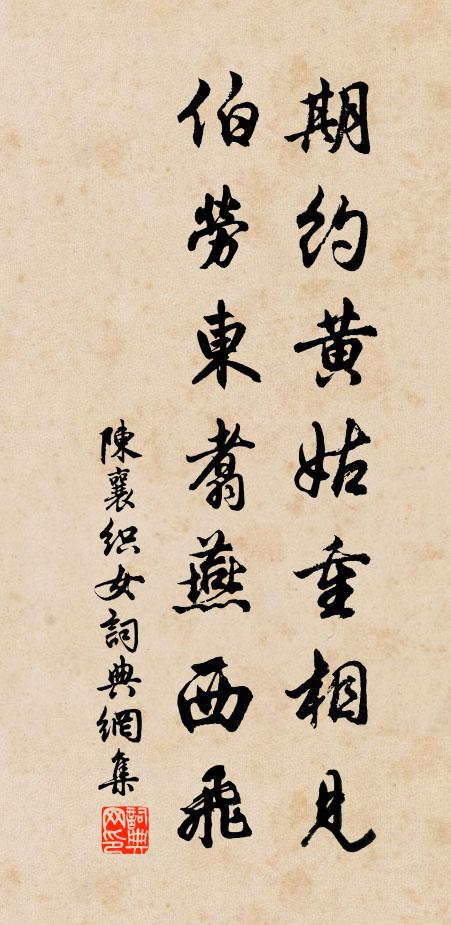 期約黃姑重相見
伯勞東翥燕西飛
陳襄织女詞典網集
詞典网印